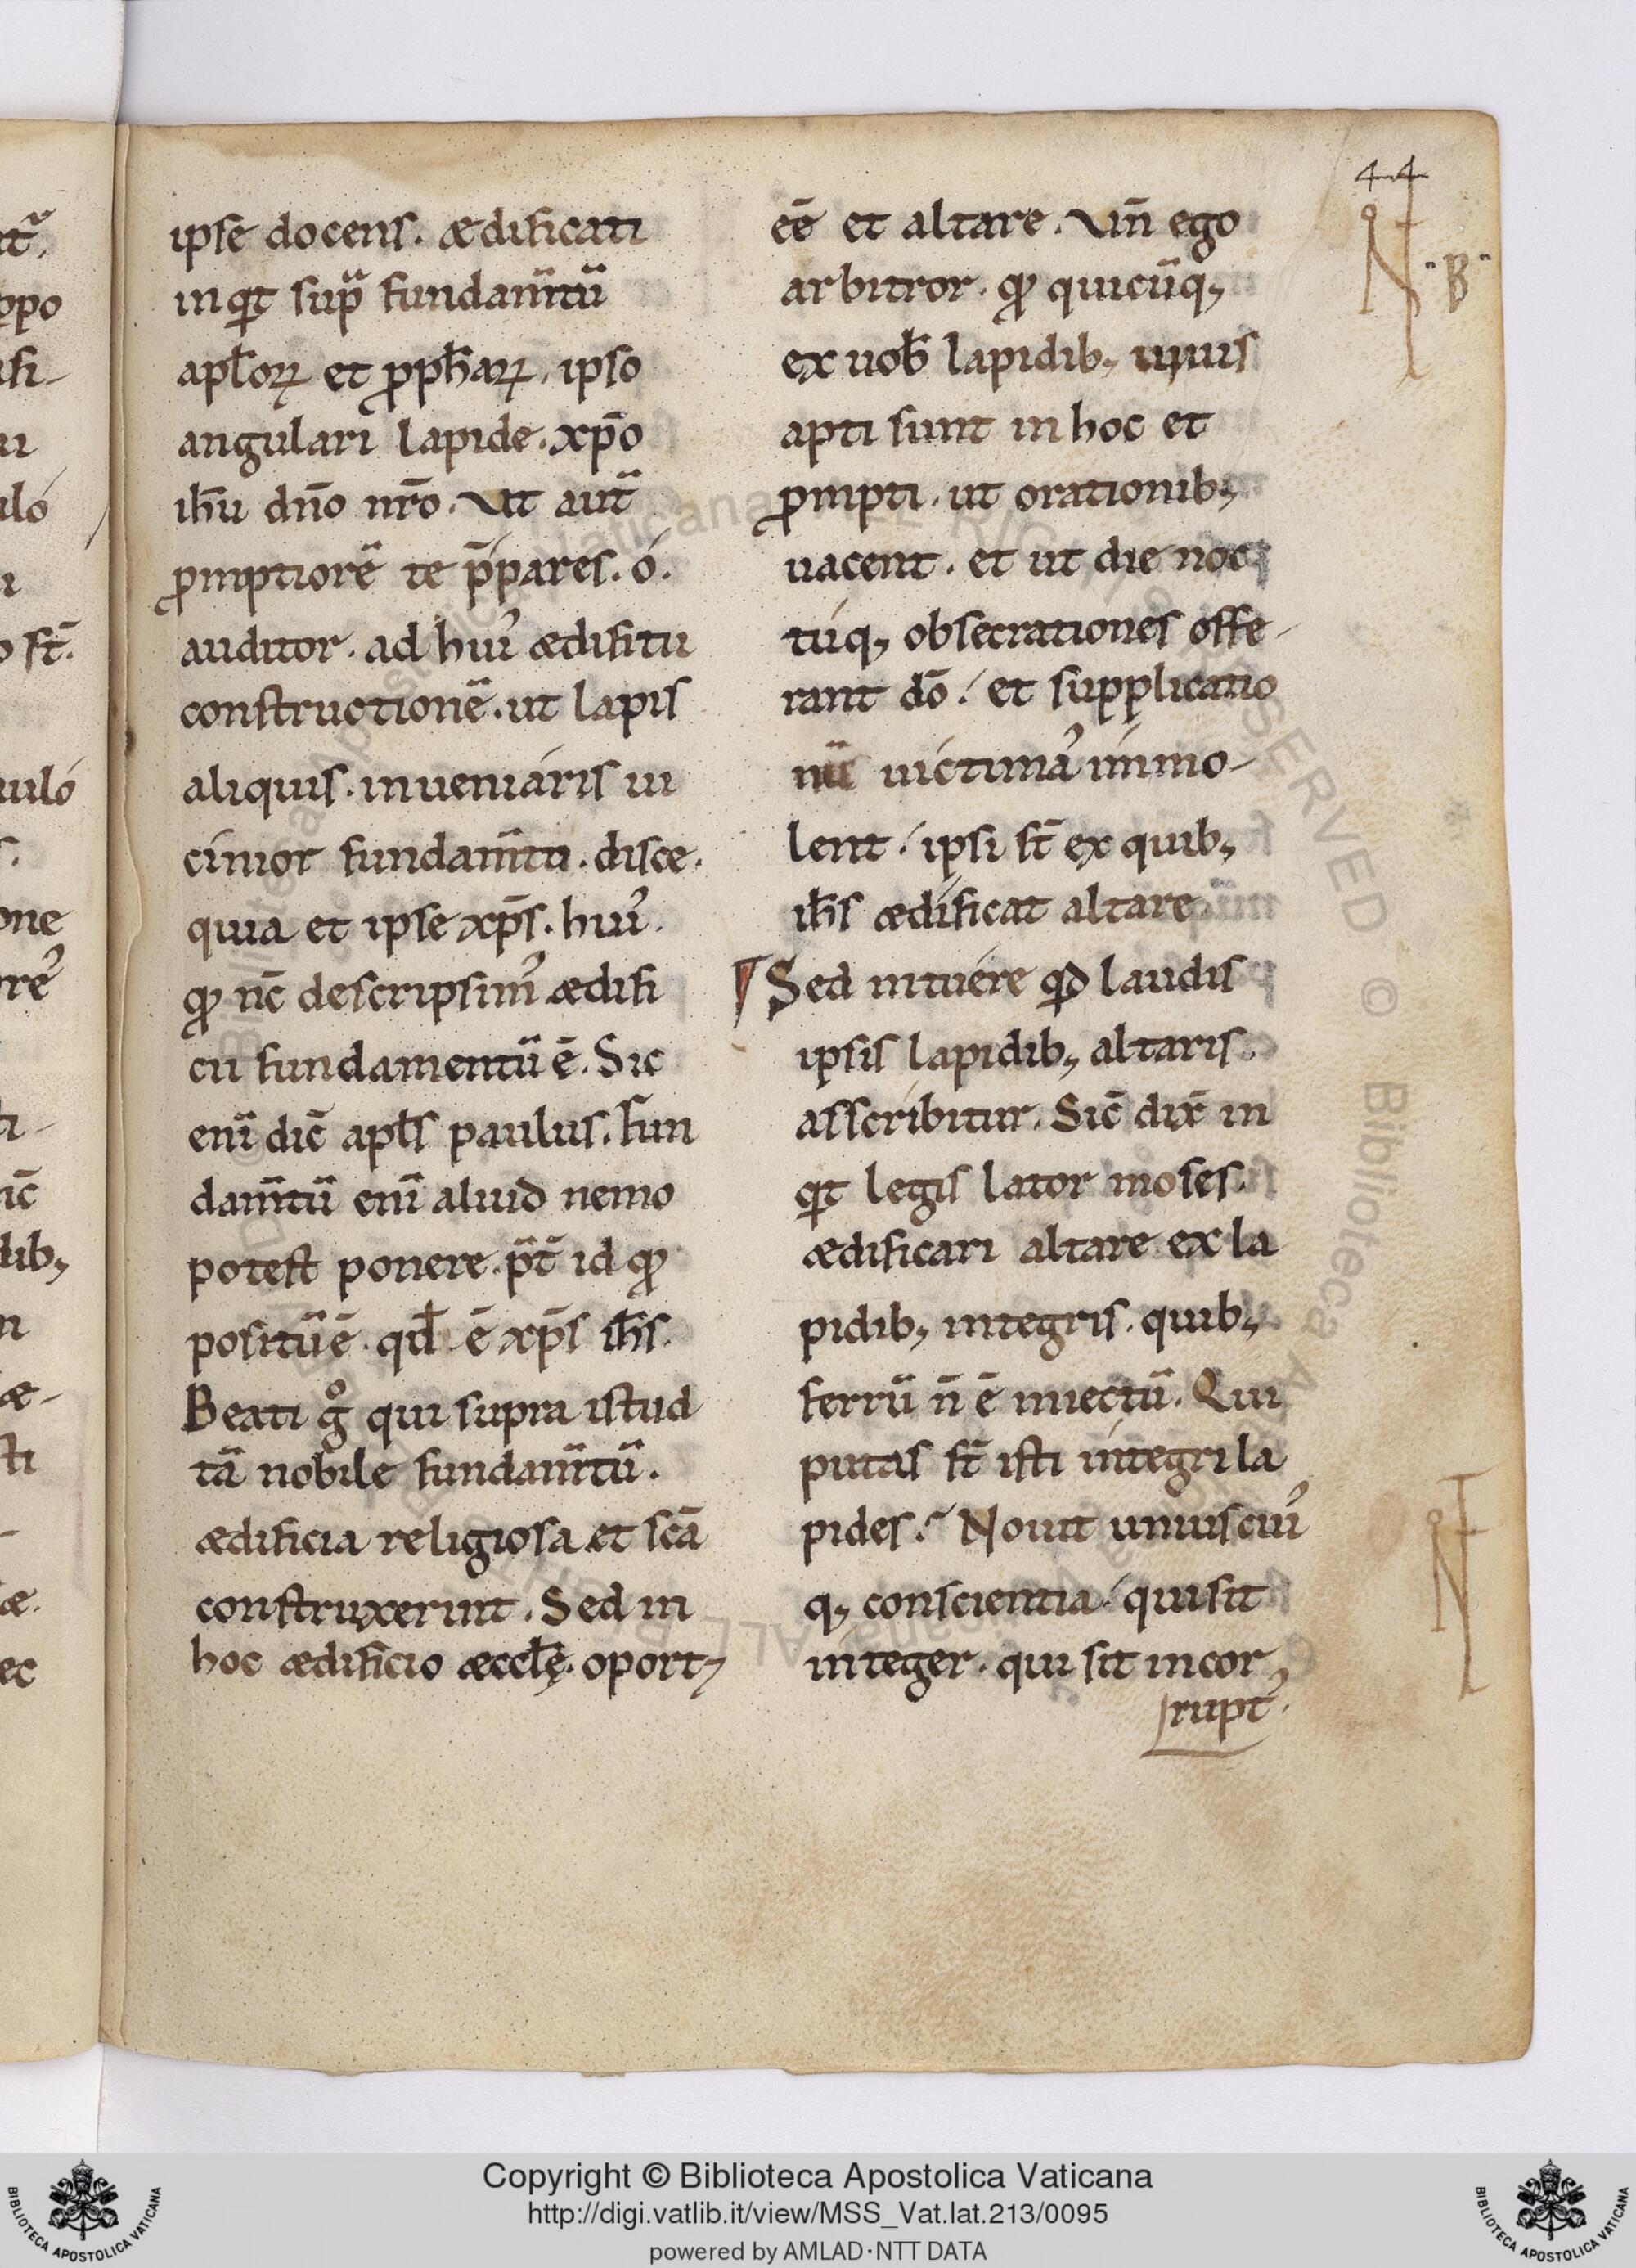 44
ipse docens. ædificati
inqt sup̄ fundam̄tū
apl̄oꝝ et ꝓph̄aꝝ. ipso
angulari lapide. xp̄o
ih̄u dn̄o nr̄o. Vt aut̄
ꝓmptiorē te p̄pares. ó.
auditor. ad huiꝰ ædificii
constructionē. ut lapis
aliquis. inueniáris ui
cínior fundam̄ti. disce.
quia et ipse xp̄s. huiꝰ.
qͦ nc̄ descripsimꝰ ædifi
cii fundamentū ē. Sic
eni̅ dic̄ apl̄s paulus. fun
dam̄tū eni̅ aliud nemo
potest ponere. p̄t id qͦ
positū ē. qd̄ ē xp̄s ih̄s.
Beati gͦ qui supra istud
tā nobile fundam̄tū.
ædificia religiosa et sc̄a
construxerint. Sed in
hoc ædificio æccl̄ę. oport&
eē et altare. Vn̄ ego
arbitror. qͦ quicūq;
ex uob̄ lapidib; uiuis
apti sunt in hoc et
ꝓmpti. ut orationib;
uacent. et ut die noc
túq; obsecrationes offe-
rant dō. et supplicatio
nū uíctimaꝰ immo-
lent. ipsi st̄ ex quib;
ih̄s ædíficat altare.
Sed intuére qͦd laudis
ipsis lapidib; altaris.
asscríbitur. Sic̄ dix̄ in
qt legis lator moses.
ædificari altare ex la
pidib; integris. quib;
ferrū n̄ ē iniectū. Qui
putas st̄ isti íntegri la
pides? Nouit uniuscuiꝰ
q; conscientia. qui sit
ínteger. qui sit incor
ruptꝰ.
N
"B"
N
Copyright © Biblioteca Apostolica Vaticana
http://digi.vatlib.it/view/MSS_Vat.lat.213/0095
powered by AMLAD·NTT DATA
BIBLIOTECA APOSTOLICA VATICANA
BIBLIOTECA APOSTOLICA VATICANA